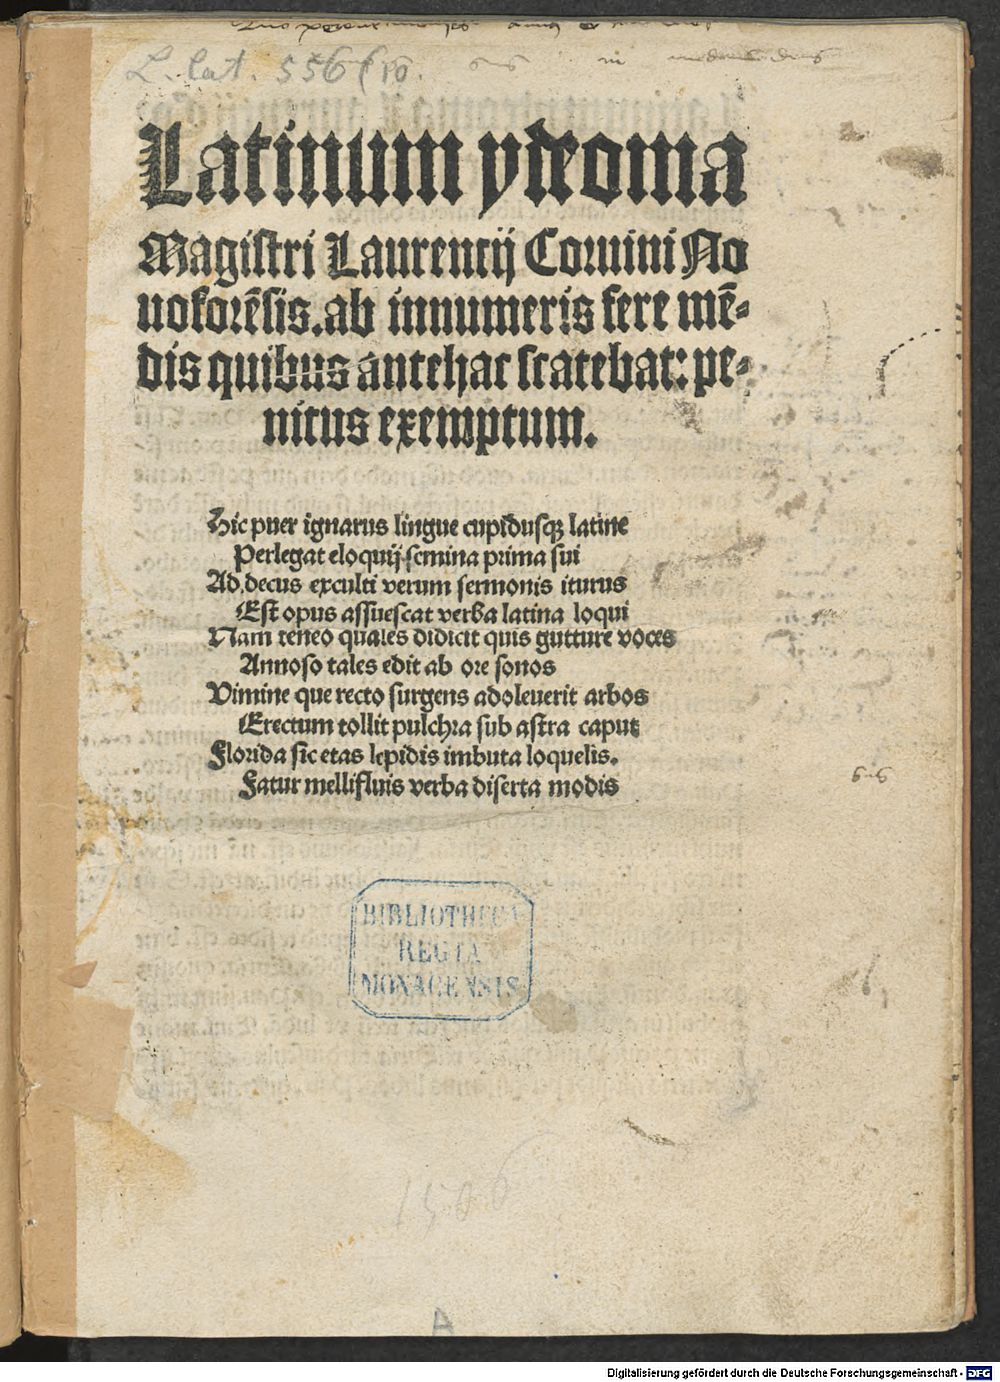 L. lat. 556 (10.
Latinum ydeoma
Magistri Laurencij Coruini No
uoforēsis. ab innumeris fere mē-
dis quibus antehac scatebat: pe-
nitus exemptum.
Hic puer ignarus lingue cupidusqꝫ latine
Perlegat eloquij semina prima sui
Ad decus exculti verum sermonis iturus
Est opus assuescat verba latina loqui
Nam teneo quales didicit quis gutture voces
Annoso tales edit ab ore sonos
Vimine que recto surgens adoleuerit arbos
Erectum tollit pulchra sub astra caput
Florida sic etas lepidis imbuta loquelis.
Fatur mellifluis verba diserta modis
BIBLIOTHECA
REGIA
MONACENSIS
1500
A
Digitalisierung gefördert durch die Deutsche Forschungsgemeinschaft - DFG